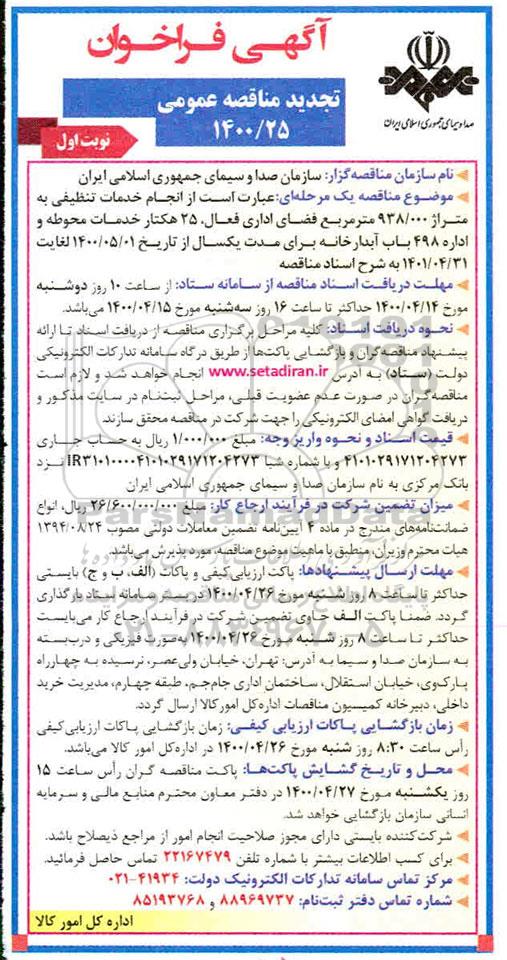 آگهی فراخوان
صدا و سیمای جمهوری اسلامی ایران
تجدید مناقصه عمومی
۱۴۰۰/۲۵
نوبت اول
نام سازمان مناقصه‌گزار: سازمان صدا و سیمای جمهوری اسلامی ایران
موضوع مناقصه یک مرحله‌ای: عبارت است از انجام خدمات تنظیفی به
متراژ ۹۳۸/۰۰۰ مترمربع فضای اداری فعال، ۲۵ هکتار خدمات محوطه و
اداره ۴۹۸ باب آبدارخانه برای مدت یکسال از تاریخ ۱۴۰۰/۰۵/۰۱ لغایت
۱۴۰۱/۰۴/۳۱ به شرح اسناد مناقصه
مهلت دریافت اسناد مناقصه از سامانه ستاد: از ساعت ۱۰ روز دوشنبه
مورخ ۱۴۰۰/۰۴/۱۴ حداکثر تا ساعت ۱۶ روز سه‌شنبه مورخ ۱۴۰۰/۰۴/۱۵ می‌باشد.
نحوه دریافت اسناد: کلیه مراحل برگزاری مناقصه از دریافت اسناد تا ارائه
پیشنهاد مناقصه‌گران و بازگشایی پاکت‌ها از طریق درگاه سامانه تدارکات الکترونیکی
دولت (ستاد) به آدرس www.setadiran.ir انجام خواهد شد و لازم است
مناقصه‌گران در صورت عدم عضویت قبلی، مراحل ثبت‌نام در سایت مذکور و
دریافت گواهی امضای الکترونیکی را جهت شرکت در مناقصه محقق سازند.
قیمت اسناد و نحوه واریز وجه: مبلغ ۱/۰۰۰/۰۰۰ ریال به حساب جاری
۴۱۰۱۰۲۹۱۷۱۲۰۴۲۷۳ و با شماره شبا IR۳۱۰۱۰۰۰۰۴۱۰۱۰۲۹۱۷۱۲۰۴۲۷۳ نزد
بانک مرکزی به نام سازمان صدا و سیمای جمهوری اسلامی ایران
میزان تضمین شرکت در فرآیند ارجاع کار: مبلغ ۲۶/۶۰۰/۰۰۰/۰۰۰ ریال، انواع
ضمانت‌نامه‌های مندرج در ماده ۴ آیین‌نامه تضمین معاملات دولتی مصوب ۱۳۹۴/۰۸/۲۴
هیات محترم وزیران، منطبق با ماهیت موضوع مناقصه، مورد پذیرش می‌باشد.
مهلت ارسال پیشنهادها: پاکت ارزیابی کیفی و پاکات (الف، ب و ج) بایستی
حداکثر تا ساعت ۸ روز شنبه مورخ ۱۴۰۰/۰۴/۲۶ در بستر سامانه ستاد بارگذاری
گردد. ضمنا پاکت الف حاوی تضمین شرکت در فرآیند ارجاع کار می‌بایست
حداکثر تا ساعت ۸ روز شنبه مورخ ۱۴۰۰/۰۴/۲۶ به‌صورت فیزیکی و درب‌بسته
به سازمان صدا و سیما به آدرس: تهران، خیابان ولی‌عصر، نرسیده به چهارراه
پارک‌وی، خیابان استقلال، ساختمان اداری جام‌جم، طبقه چهارم، مدیریت خرید
داخلی، دبیرخانه کمیسیون مناقصات اداره‌کل امور کالا ارسال گردد.
زمان بازگشایی پاکات ارزیابی کیفی: زمان بازگشایی پاکات ارزیابی کیفی
رأس ساعت ۸:۳۰ روز شنبه مورخ ۱۴۰۰/۰۴/۲۶ در اداره‌کل امور کالا می‌باشد.
محل و تاریخ گشایش پاکت‌ها: پاکت مناقصه گران رأس ساعت ۱۵
روز یکشنبه مورخ ۱۴۰۰/۰۴/۲۷ در دفتر معاون محترم منابع مالی و سرمایه
انسانی سازمان بازگشایی خواهد شد.
شرکت‌کننده بایستی دارای مجوز صلاحیت انجام امور از مراجع ذیصلاح باشد.
برای کسب اطلاعات بیشتر با شماره تلفن ۲۲۱۶۷۴۷۹ تماس حاصل فرمائید.
مرکز تماس سامانه تدارکات الکترونیک دولت: ۴۱۹۳۴-۰۲۱
شماره تماس دفتر ثبت‌نام: ۸۸۹۶۹۷۳۷ و ۸۵۱۹۳۷۶۸
اداره کل امور کالا